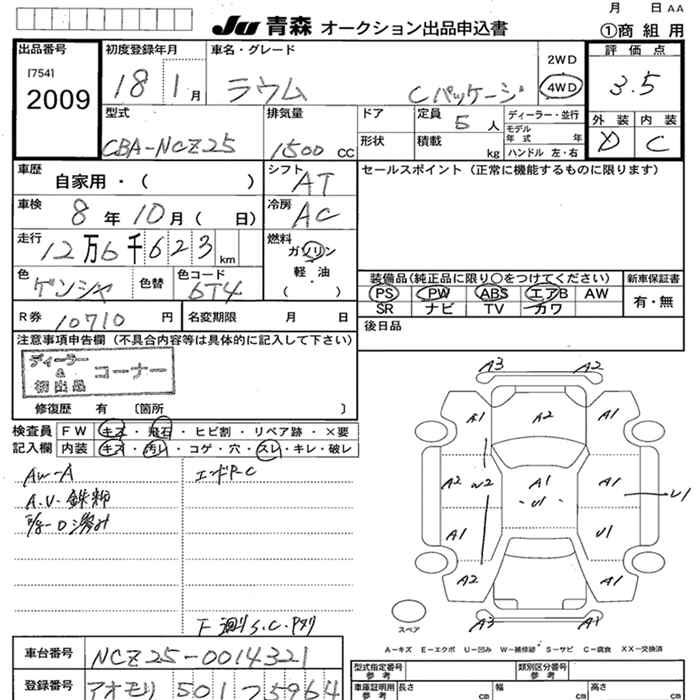 月 日 AA
JU 青森 オークション出品申込書
①商 組 用
出品番号
[754]
2009
初度登録年月
18 1月
車名・グレード
ラウム Cパッケージ
2WD
4WD
評価点
3.5
外装 内装
D C
型式
CBA-NCZ25
排気量
1500 CC
ドア
形状
定員 5 人
積載 kg
ディーラー・並行
モデル年式 年
ハンドル 左・右
車歴
自家用・( )
シフト
AT
セールスポイント(正常に機能するものに限ります)
車検
8年10月( 日)
冷房
AC
走行
12万6千623km
燃料
ガソリン
軽・油
( )
色
ゲンシャ
色替
色コード
6T4
装備品(純正品に限り〇をつけてください)
PS PW ABS エアB AW
SR ナビ TV カワ
新車保証書
有・無
R券
10710 円
名変期限 月 日
後日品
注意事項申告欄(不具合内容等は具体的に記入して下さい)
ディーラー
&
初出品
コーナー
修復歴 有 〔箇所 〕
検査員
記入欄
FW キズ・飛石・ヒビ割・リペア跡・×要
内装 キズ・汚レ・コゲ・穴・スレ・キレ・破レ
AW-A
エンドP-C
A3 A2
A1 A2 A1
A2 W2 A1 A1 U1 U1
A1 U1
A2 A1
A3 A1
スペア
A=キズ E=エクボ U=凹み W=補修跡 S=サビ C=腐食 XX=交換済
車台番号
NCZ25-0014321
登録番号
アオモリ 501 75964
型式指定番号
参考
類別区分番号
参考
車庫証明用
参考
長さ cm
幅 cm
高さ cm